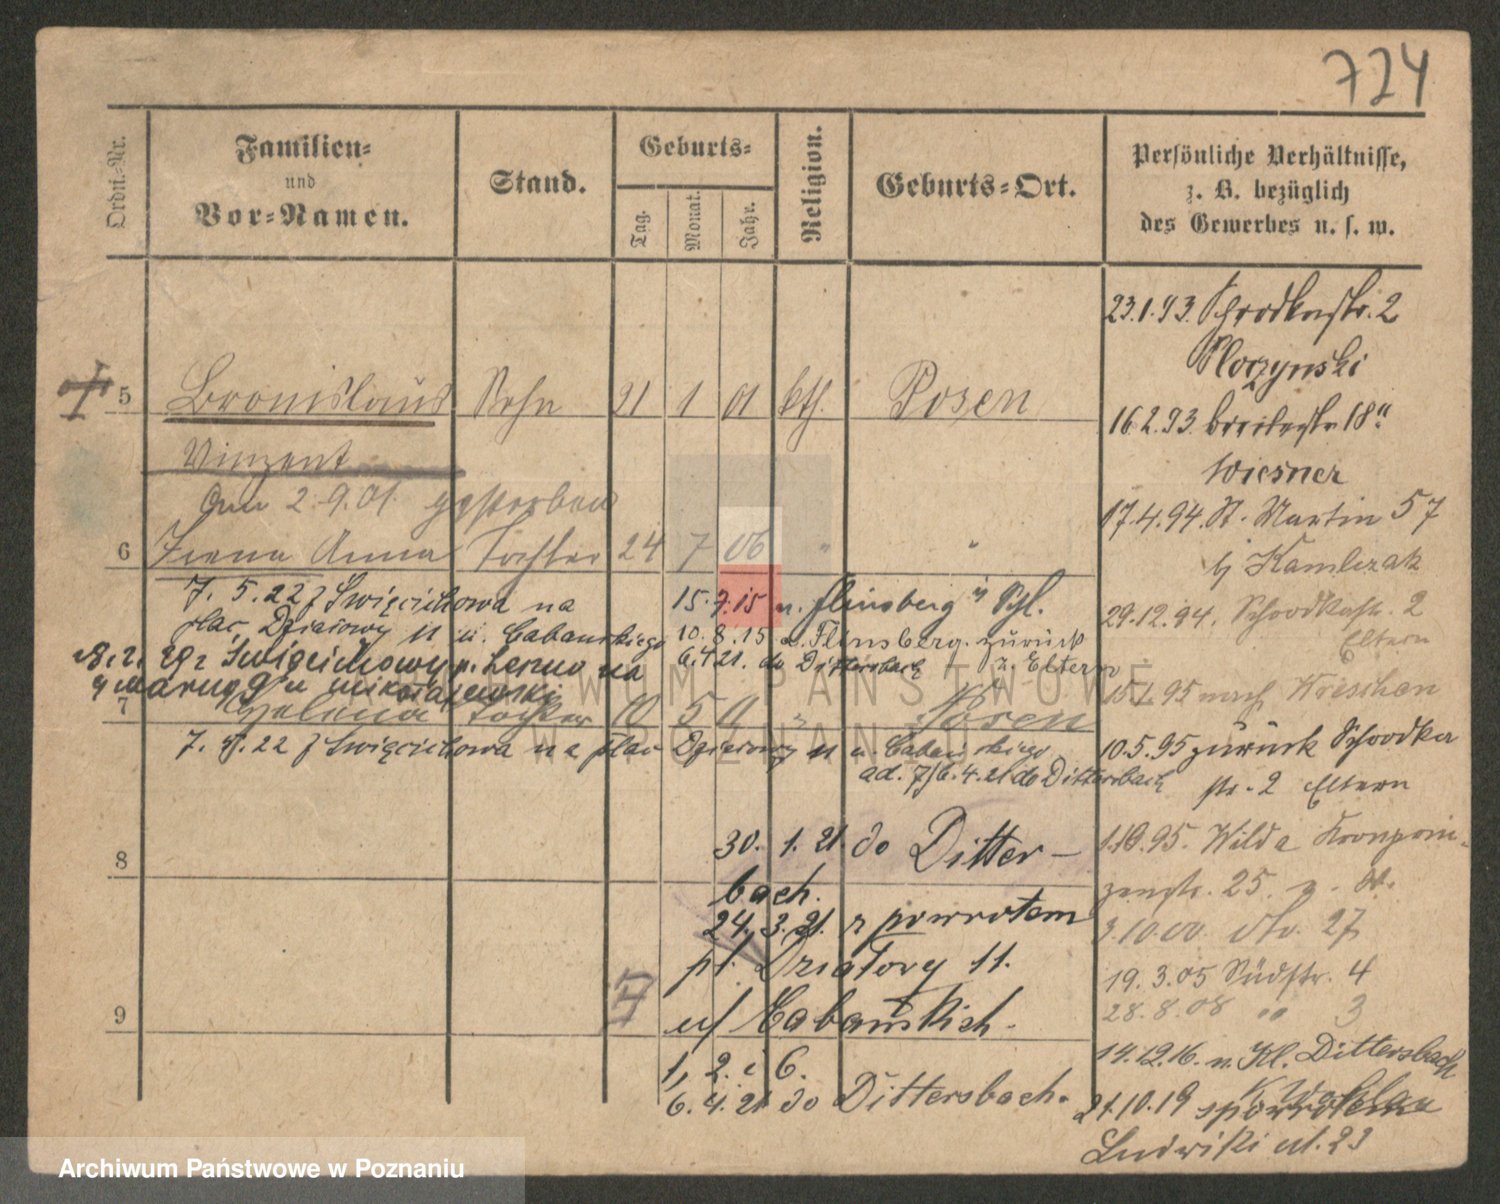 724
Ordn.-Nr.
Familien-
und
Vor-Namen.
Stand.
Geburts-
Tag.
Monat.
Jahr.
Religion.
Geburts-Ort.
Persönliche Verhältnisse,
z. B. bezüglich
des Gewerbes u. s. w.
5 Bronislaus Sohn 21 1 01 kth. Posen
Vinzent
Am 2.9.01. gestorben
6 Irena Anna Tochter 24 7 06 " "
7. 5. 22 z Święciechowa na
plac Działowy 11 u. Cabańskiego
15.7.15 n. Flinsberg i/Schl.
10.8.15 v. Flinsberg. zurück
z. Eltern
6.4.21. do Dittersbach
Święciechowy p. Leszno na
7 Helena Tochter 10 5 11 " Posen
7. 5. 22 z Święciechowa na plac Działowy 11 u. Cabańskiego
ad. 7/6.4.21 do Dittersbach
8
30. 1. 21. do Ditters-
bach.
24. 3. 21. z powrotem
pl. Działowy 11.
9
u/ Cabańskich.
1, 2 i 6.
6.4.21 do Dittersbach.
23.1.93. Schrodkastr. 2
Ploczynski
16.2.93. Breitestr. 18"
Wiesner
17.4.94. St. Martin 57
bj Kamlczak
29.12.94. Schrodkastr. 2
Eltern
15.1.95 nach Wreschen
10.5.95 zurück Schrodka
str. 2 Eltern
1.10.95. Wilda Kronprin-
zenstr. 25
3.10.00. dto. 27
19.3.05 Südstr. 4
28.8.08 " 3
14.12.16. n. Kl. Dittersbach
K. Wohlau
21.10.19 spowrotem
Ludwiki ul. 23
ARCHIWUM PAŃSTWOWE
W POZNANIU
Archiwum Państwowe w Poznaniu